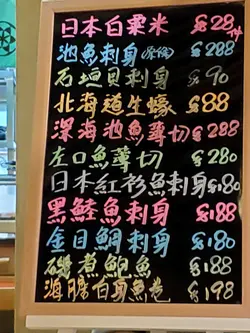 日本白粟米 $28/件
池魚刺身 $288
石垣貝刺身 $90
北海道生蠔 $88
深海池魚薄切 $288
左口魚薄切 $280
日本紅衫魚刺身 $180
黑鮭魚刺身 $188
金目鯛刺身 $180
磯煮鮑魚 $188
海膽白身魚卷 $198